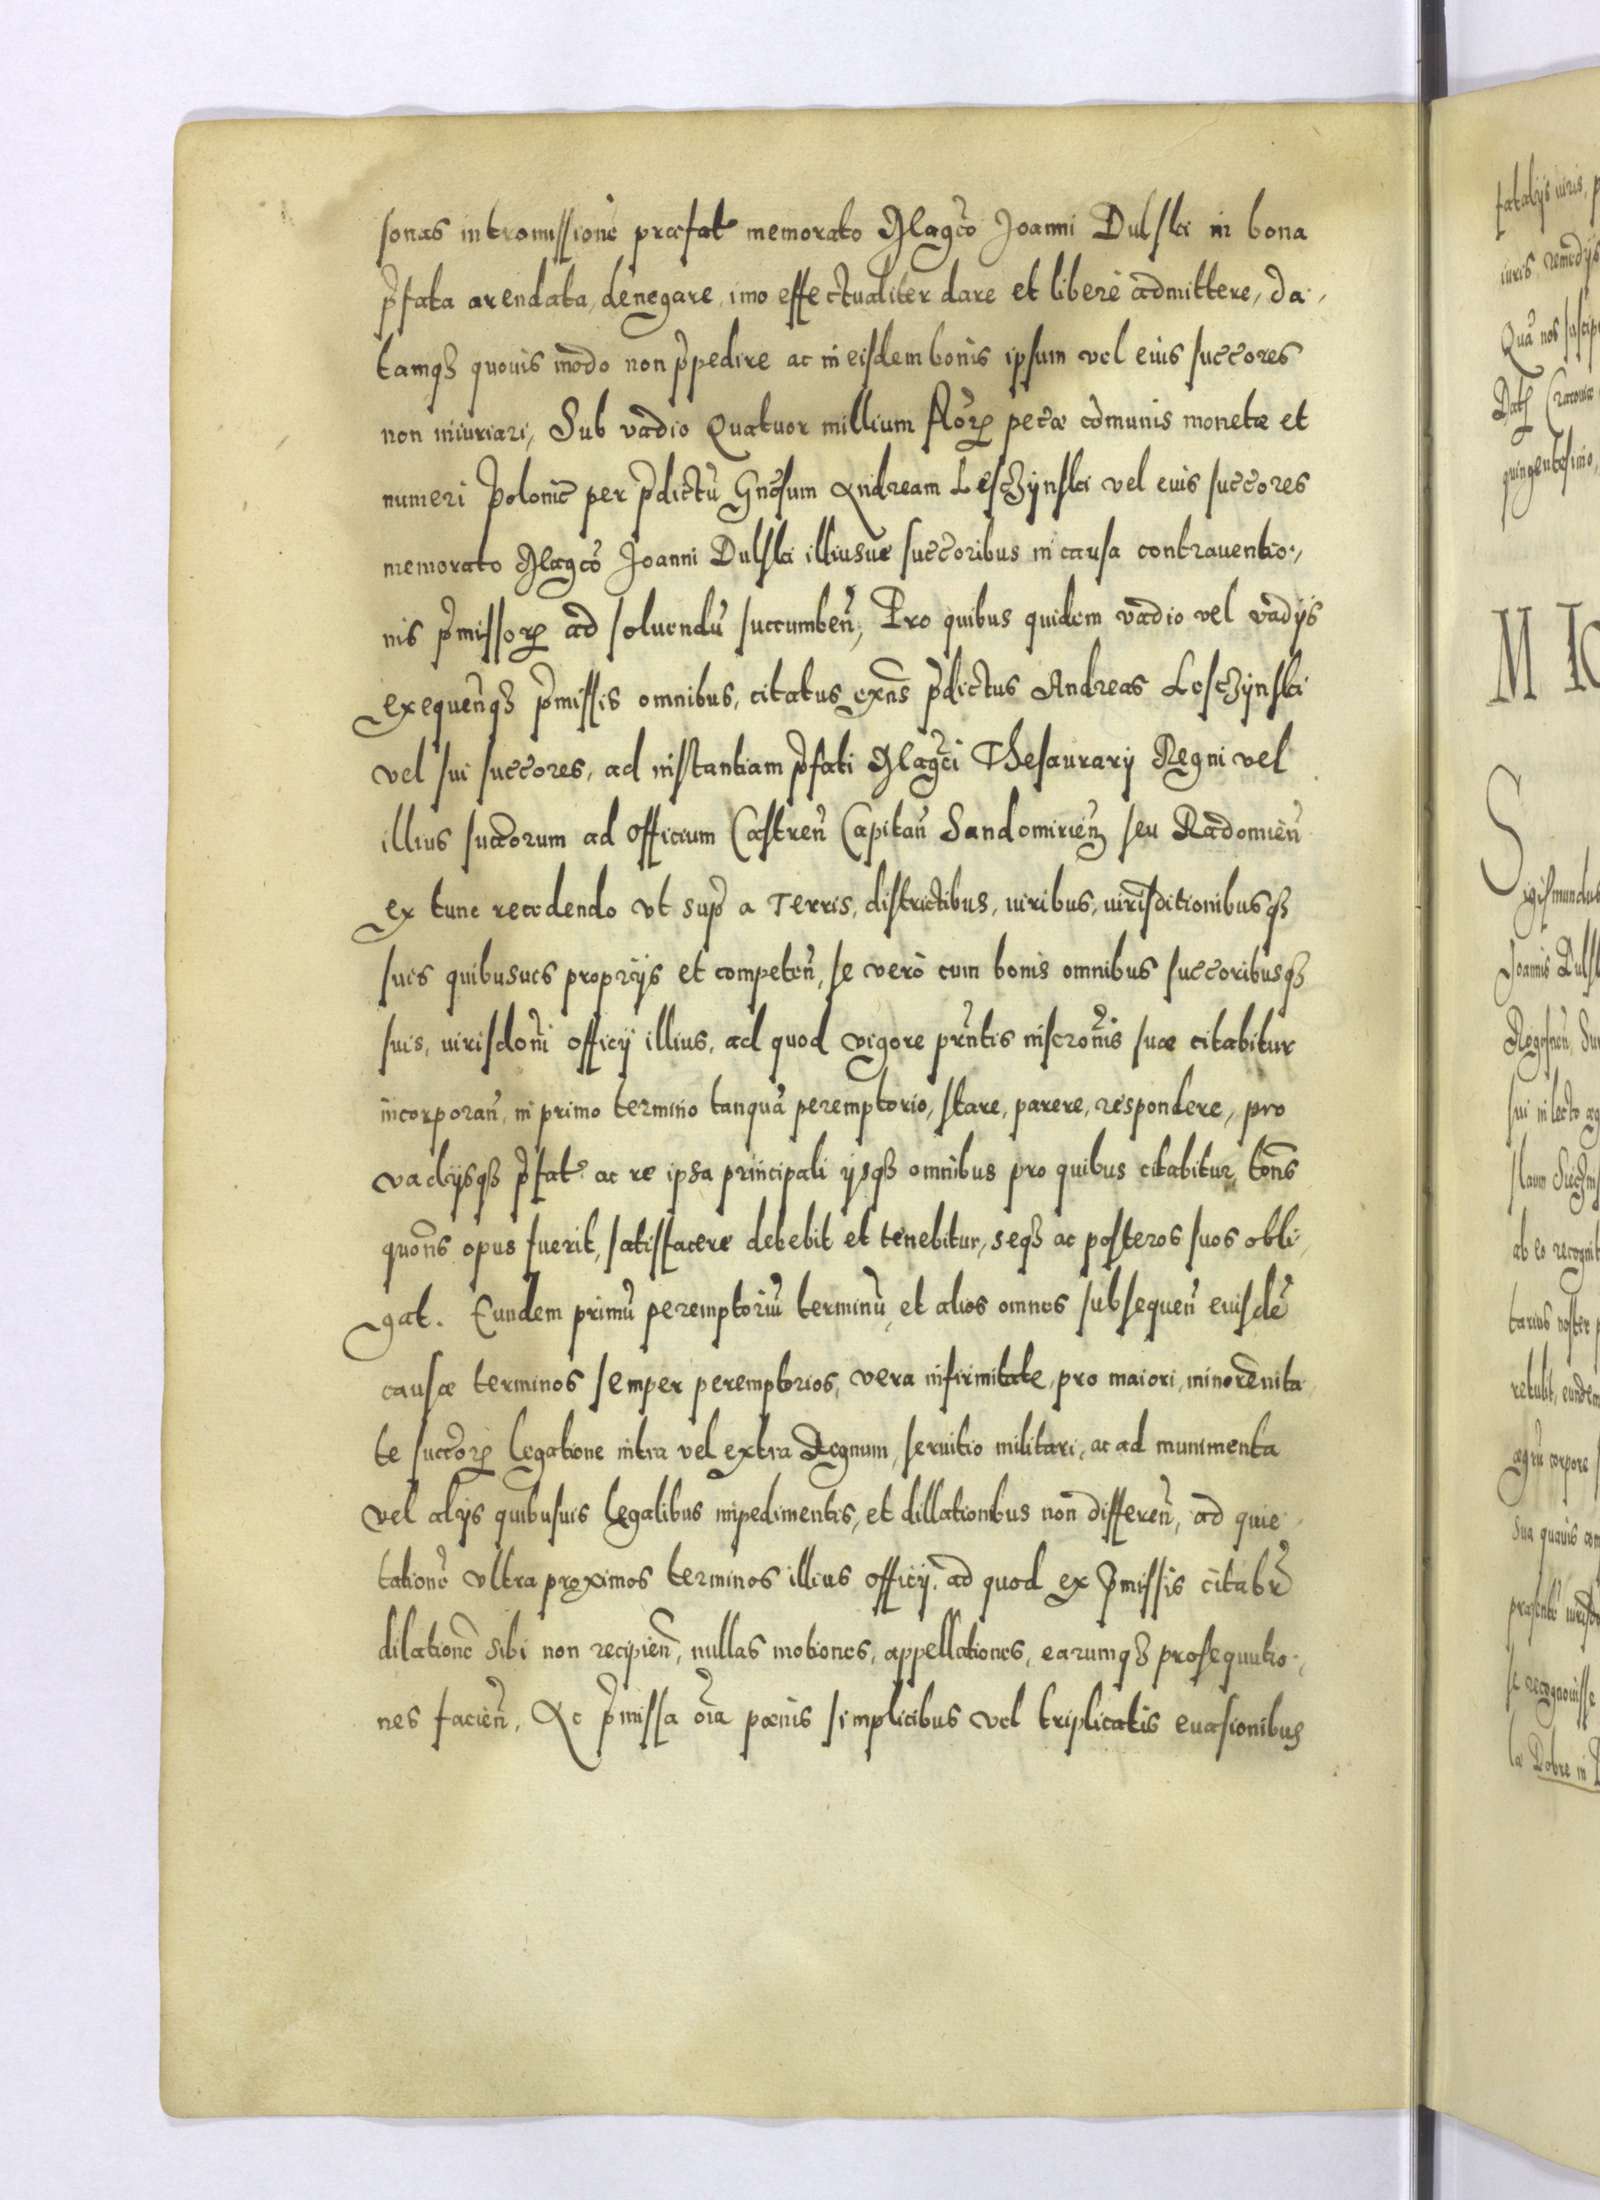 sonas intromissionē præfat memorato Magco Joanni Dulski in bona
p̄fata arendata, denegare, imo effectualiter dare et liberè admittere, da,
tamq₃ quouis modo non p̄pedire ac in eisdem bonis ipsum vel eius succores
non iniuriari, Sub vadio Quatuor millium florꝝ pecæ cōmunis monetæ et
numeri Polonic per p̄dictū Gnosum Andream Leschynski vel eius succores
memorato Magco Joanni Dulski illiusue succoribus in causa contrauentio,
nis p̄missorꝝ ad soluendū succumbeñ, Pro quibus quidem vadio vel vadijs
exequeñq₃ p̄missis omnibus, citatus exñs p̄dictus Andreas Leschynski
vel sui succores, ad instantiam p̄fati Magci Thesaurarij Regni vel
illius succorum ad Officium Castreñ Capitañ Sandomirieñ seu Radomieñ
ex tunc recedendo vt sup̄ a Terris, districtibus, iuribus, iurisditionibusq₃
suis quibusuis proprijs et competeñ, se verò cum bonis omnibus succoribusq₃
suis, iurisdoñi officij illius, ad quod vigore prñtis inscroñis suæ citabitur
incorporañ, in primo termino tanquā peremptorio, stare, parere, respondere, pro
vadijsq₃ p̄fat ac re ipsa principali ijsq₃ omnibus pro quibus citabitur, toñs
quoñs opus fuerit, satisfacere debebit et tenebitur, seq₃ ac posteros suos obli,
gat. Eundem primū peremptoriū terminū, et alios omnes subsequeñ eiusdē
causæ terminos semper peremptorios, vera infirmitate, pro maiori, minorēnita,
te succorꝝ legatione intra vel extra Regnum, seruitio militari, ac ad munimenta
vel alijs quibusuis legalibus impedimentis, et dillationibus non differeñ, ad quie
tationē vltra proximos terminos illius officij, ad quod ex p̄missis citabr̄
dilationē sibi non recipieñ, nullas motiones, appellationes, earumq₃ prosequutio,
nes facieñ, Ac p̄missa oīa pœnis simplicibus vel triplicatis euasionibus